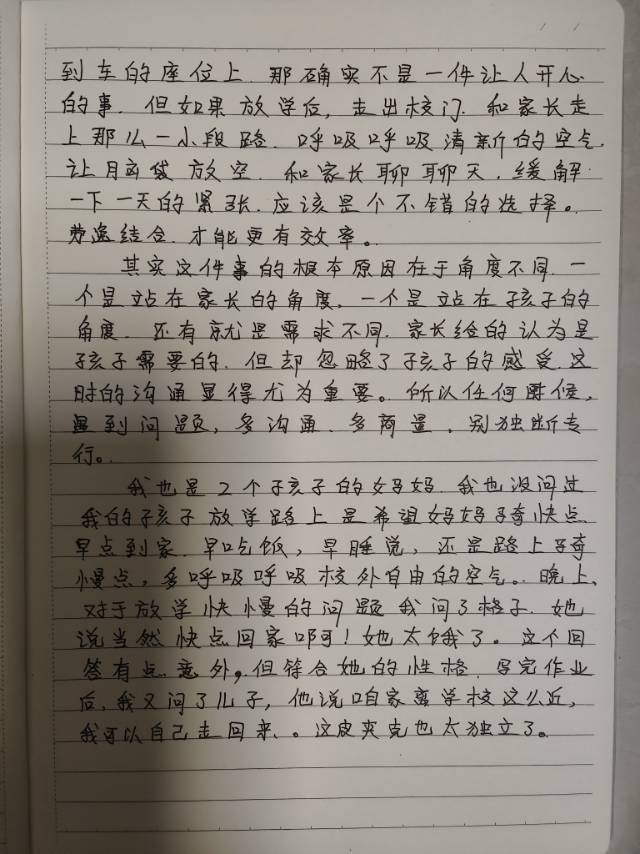 到车的座位上.那确实不是一件让人开心
的事.但如果放学后,走出校门.和家长走
上那么一小段路.呼吸呼吸清新的空气,
让脑袋放空.和家长聊聊天,缓解
一下一天的紧张.应该是个不错的选择。
劳逸结合.才能更有效率。
其实这件事的根本原因在于角度不同.一
个是站在家长的角度,一个是站在孩子的
角度.还有就是需求不同.家长给的认为是
孩子需要的.但却忽略了孩子的感受.这
时的沟通显得尤为重要。所以任何时候,
遇到问题,多沟通.多商量.别独断专
行。
我也是2个孩子的妈妈.我也没问过
我的孩子放学路上是希望妈妈骑快点
早点到家.早吃饭,早睡觉,还是路上骑
慢点,多呼吸呼吸校外自由的空气。晚上,
对于放学快慢的问题我问了格子.她
说当然快点回家啊!她太饿了。这个回
答有点意外,但符合她的性格.写完作业
后,我又问了儿子,他说咱家离学校这么近,
我可以自己走回来.。这皮夹克也太独立了。